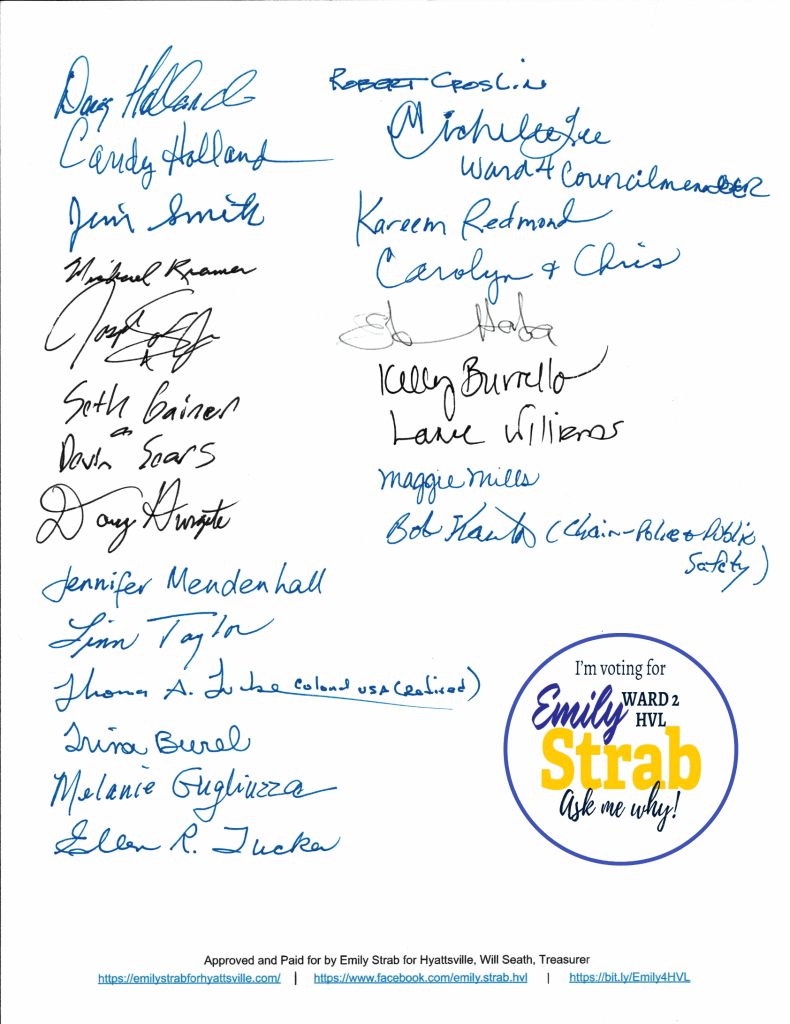 Doug Holland
Candy Holland
Jim Smith
Michael Kramer
Joseph
Seth Gainer
Devin Sears
Doug
Jennifer Mendenhall
Linn Taylor
Thomas A. Tucker Colonel USA (Retired)
Trina Burel
Melanie Gugliuzza
Ellen R. Tucker
ROBERT CROSLIN
Michelle Lee
Ward 4 Councilmember
Kareem Redmond
Carolyn & Chris
Kelly Burrello
Lane Williams
Maggie Mills
Bob (Chair-Police & Public
Safety)
I'm voting for
Emily WARD 2
HVL
Strab
Ask me why!
Approved and Paid for by Emily Strab for Hyattsville, Will Seath, Treasurer
https://emilystrabforhyattsville.com/ | https://www.facebook.com/emily.strab.hvl | https://bit.ly/Emily4HVL